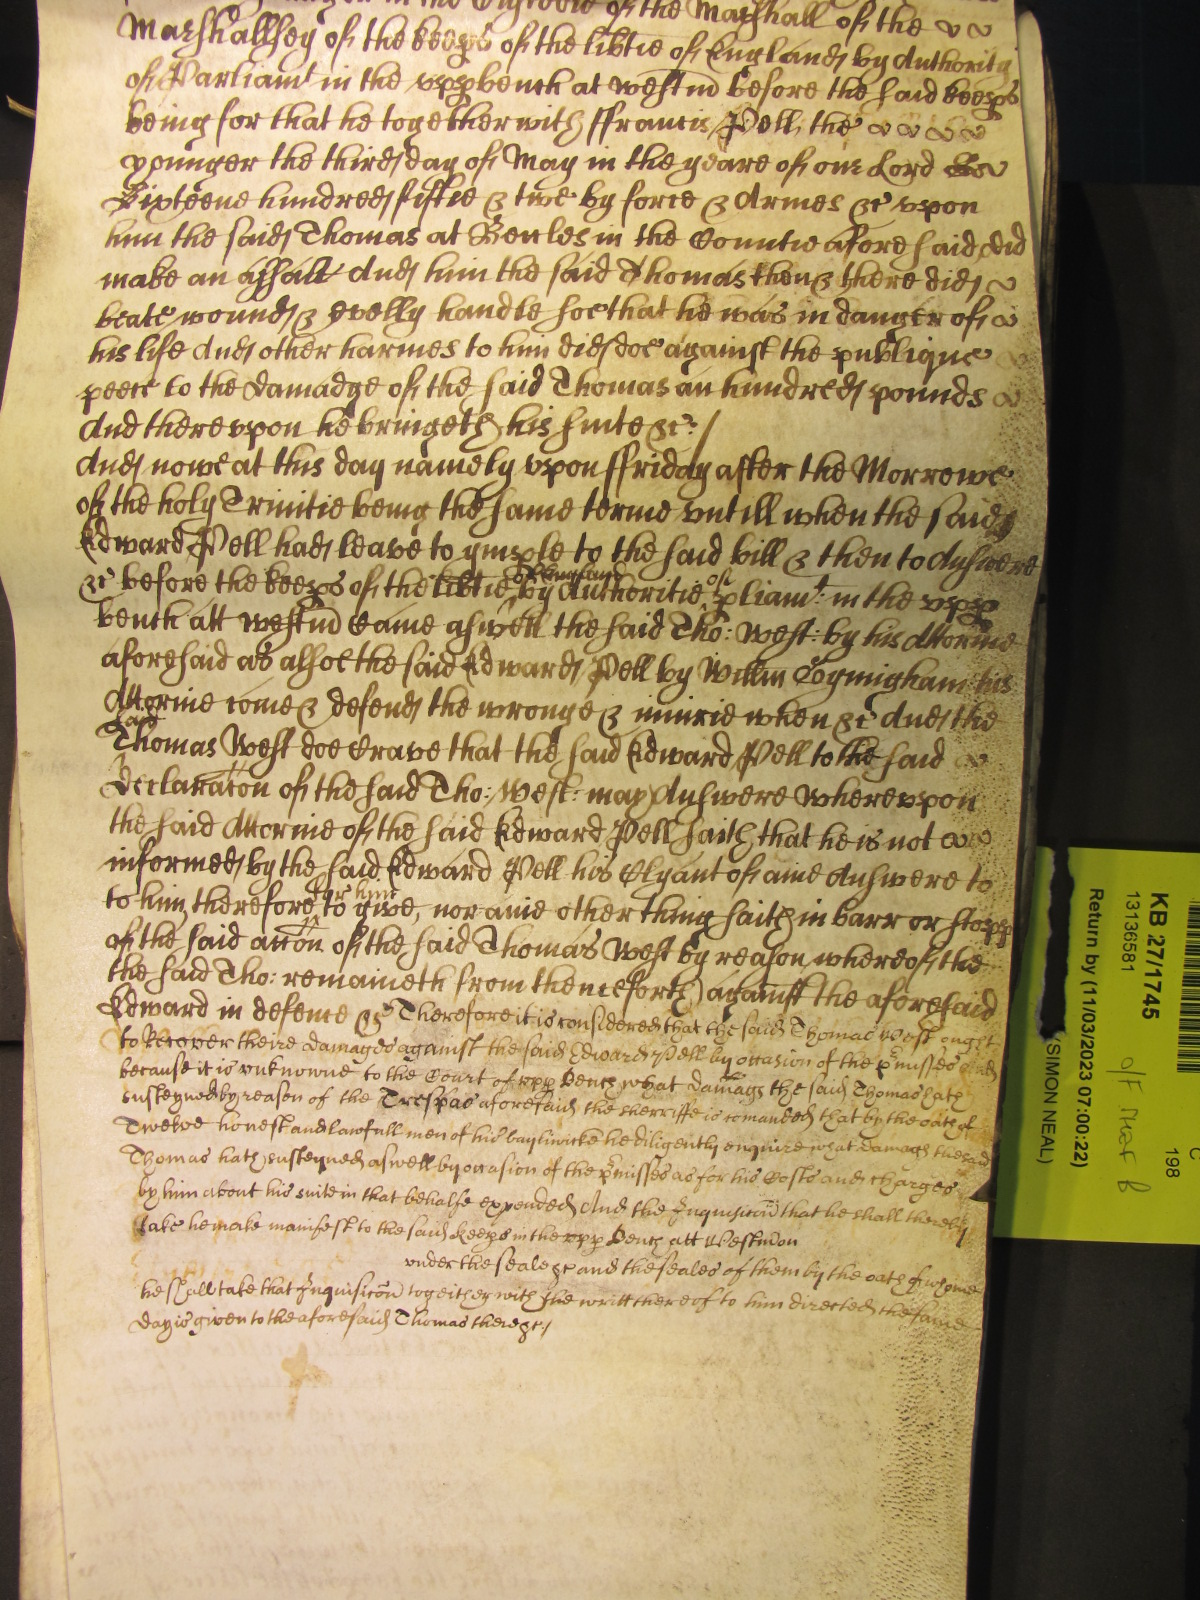 in the Custodie of the Marshall of the
Marshallsey of the keeps of the libtie of England by Authority
of Parliamt in the uppbench at westm before the said keeps
being for that he together with ffrancis Pell the
younger the third day of May in the yeare of our Lord
Sixteene hundred fiftie & two by force & Armes &c upon
him the said Thomas at Beccles in the Countie aforesaid did
make an assalt And him the said Thomas then & there did
beate wound & evelly handle soe that he was in danger of
his life And other harmes to him did doe against the publique
peece to the damadge of the said Thomas an hundred pounds
And thereupon he bringeth his suite &c:/
And nowe at this day namely upon ffriday after the Morrowe
of the holy Trinitie being the same terme untill when the said
Edward Pell had leave to imple to the said bill & then to Answere
&c before the keeps of the libtie of England by Authoritie of pliamt: in the upp
bench att westm came aswell the said Tho: West: by his Attornie
aforesaid as alsoe the said Edward Pell by Willm his
Attornie come & defend the wronge & iniurie when &c And the
said
Thomas West doe Crave that the said Edward Pell to the said
declaracon of the said Tho: West: may Answere Whereupon
the said Attornie of the said Edward Pell saith that he is not
informed by the said Edward Pell his Clyant of anie Answere to
for him
to him therefore to give, nor anie other thing saith in barr or stopp
of the said accon of the said Thomas West by reason whereof the
the said Tho: remaineth from thenceforth against the aforesaid
Edward in defence &c Therefore it is considered that the said Thomas West ought
to Recover theire damages against the said Edward Pell by occasion of the pmisses And
because it is unknowne to the Court of upp Bench what damags the said Thomas hath
susteyned by reason of the Trespas aforesaid the sherriffe is comanded that by the oath of
Twelve honest and lawfull men of his bayliwicke he diligently enquire what damags the said
Thomas hath susteyned aswell by occasion of the pmisses as for his Costs and charges
by him about his suite in that behalfe expended And the Inquisicon that he shall thereby
take he make manifest to the said keeps in the upp Bench att Westmon
under the seale &c and the seales of them by the oath of whome
he shall take that Inquisicon togeither with the writt thereof to him directed the same
day is given to the aforesaid Thomas there &c/
KB 27/1745
13136581
Return by (11/03/2023 07:00:22)
(SIMON NEAL)
198
C